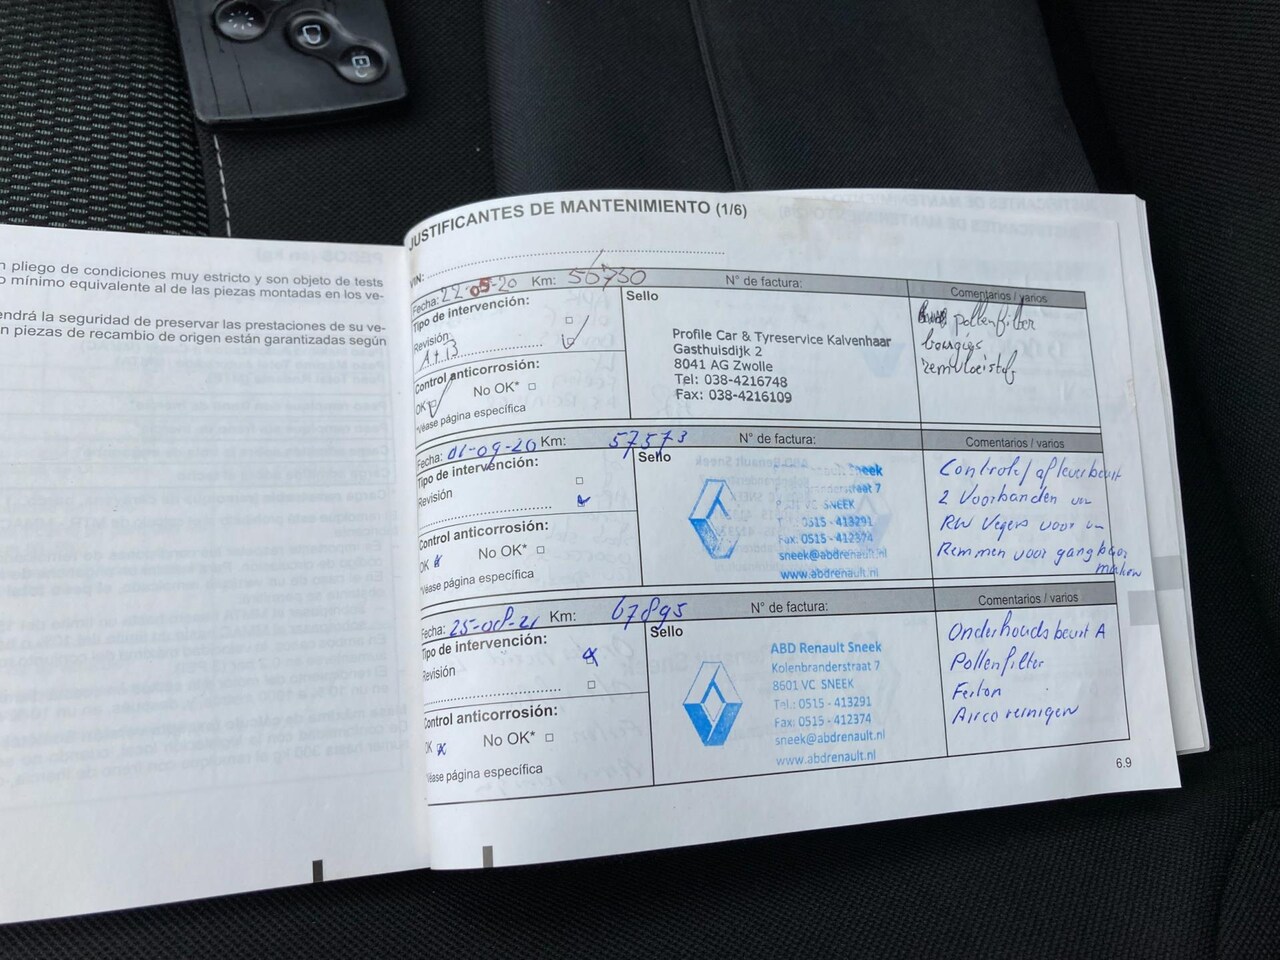 n pliego de condiciones muy estricto y son objeto de tests
o mínimo equivalente al de las piezas montadas en los ve-
endrá la seguridad de preservar las prestaciones de su ve-
n piezas de recambio de origen están garantizadas según
JUSTIFICANTES DE MANTENIMIENTO (1/6)
VIN:
Fecha: 22-05-20 Km: 50730 N° de factura:
Comentarios / varios
Tipo de intervención:
Revisión
A+B
Control anticorrosión:
OK No OK*
*Véase página específica
Sello
Profile Car & Tyreservice Kalvenhaar
Gasthuisdijk 2
8041 AG Zwolle
Tel: 038-4216748
Fax: 038-4216109
pollenfilter
bougies
remvloeistof
Fecha: 01-09-20 Km: 57573 N° de factura:
Comentarios / varios
Tipo de intervención:
Revisión
Control anticorrosión:
OK x No OK*
*Véase página específica
Sello
Sneek
nderstraat 7
SNEEK
0515 - 413291
Fax: 0515 - 412374
sneek@abdrenault.nl
www.abdrenault.nl
Controle/afleverbeurt
2 Voorbanden
RW Vegers voor
Remmen voor gangbaar
maken
Fecha: 25-08-21 Km: 67895 N° de factura:
Comentarios / varios
Tipo de intervención:
Revisión x
Control anticorrosión:
OK x No OK*
*Véase página específica
Sello
ABD Renault Sneek
Kolenbranderstraat 7
8601 VC SNEEK
Tel.: 0515 - 413291
Fax: 0515 - 412374
sneek@abdrenault.nl
www.abdrenault.nl
Onderhoudsbeurt A
Pollenfilter
Airco reinigen
6.9